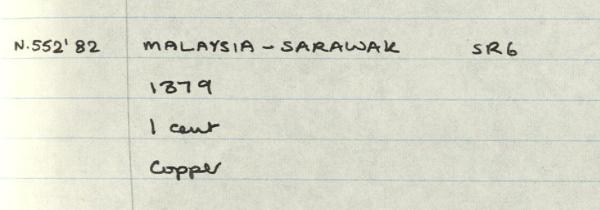 N.552'82 MALAYSIA - SARAWAK SR6
1879
1 cent
Copper